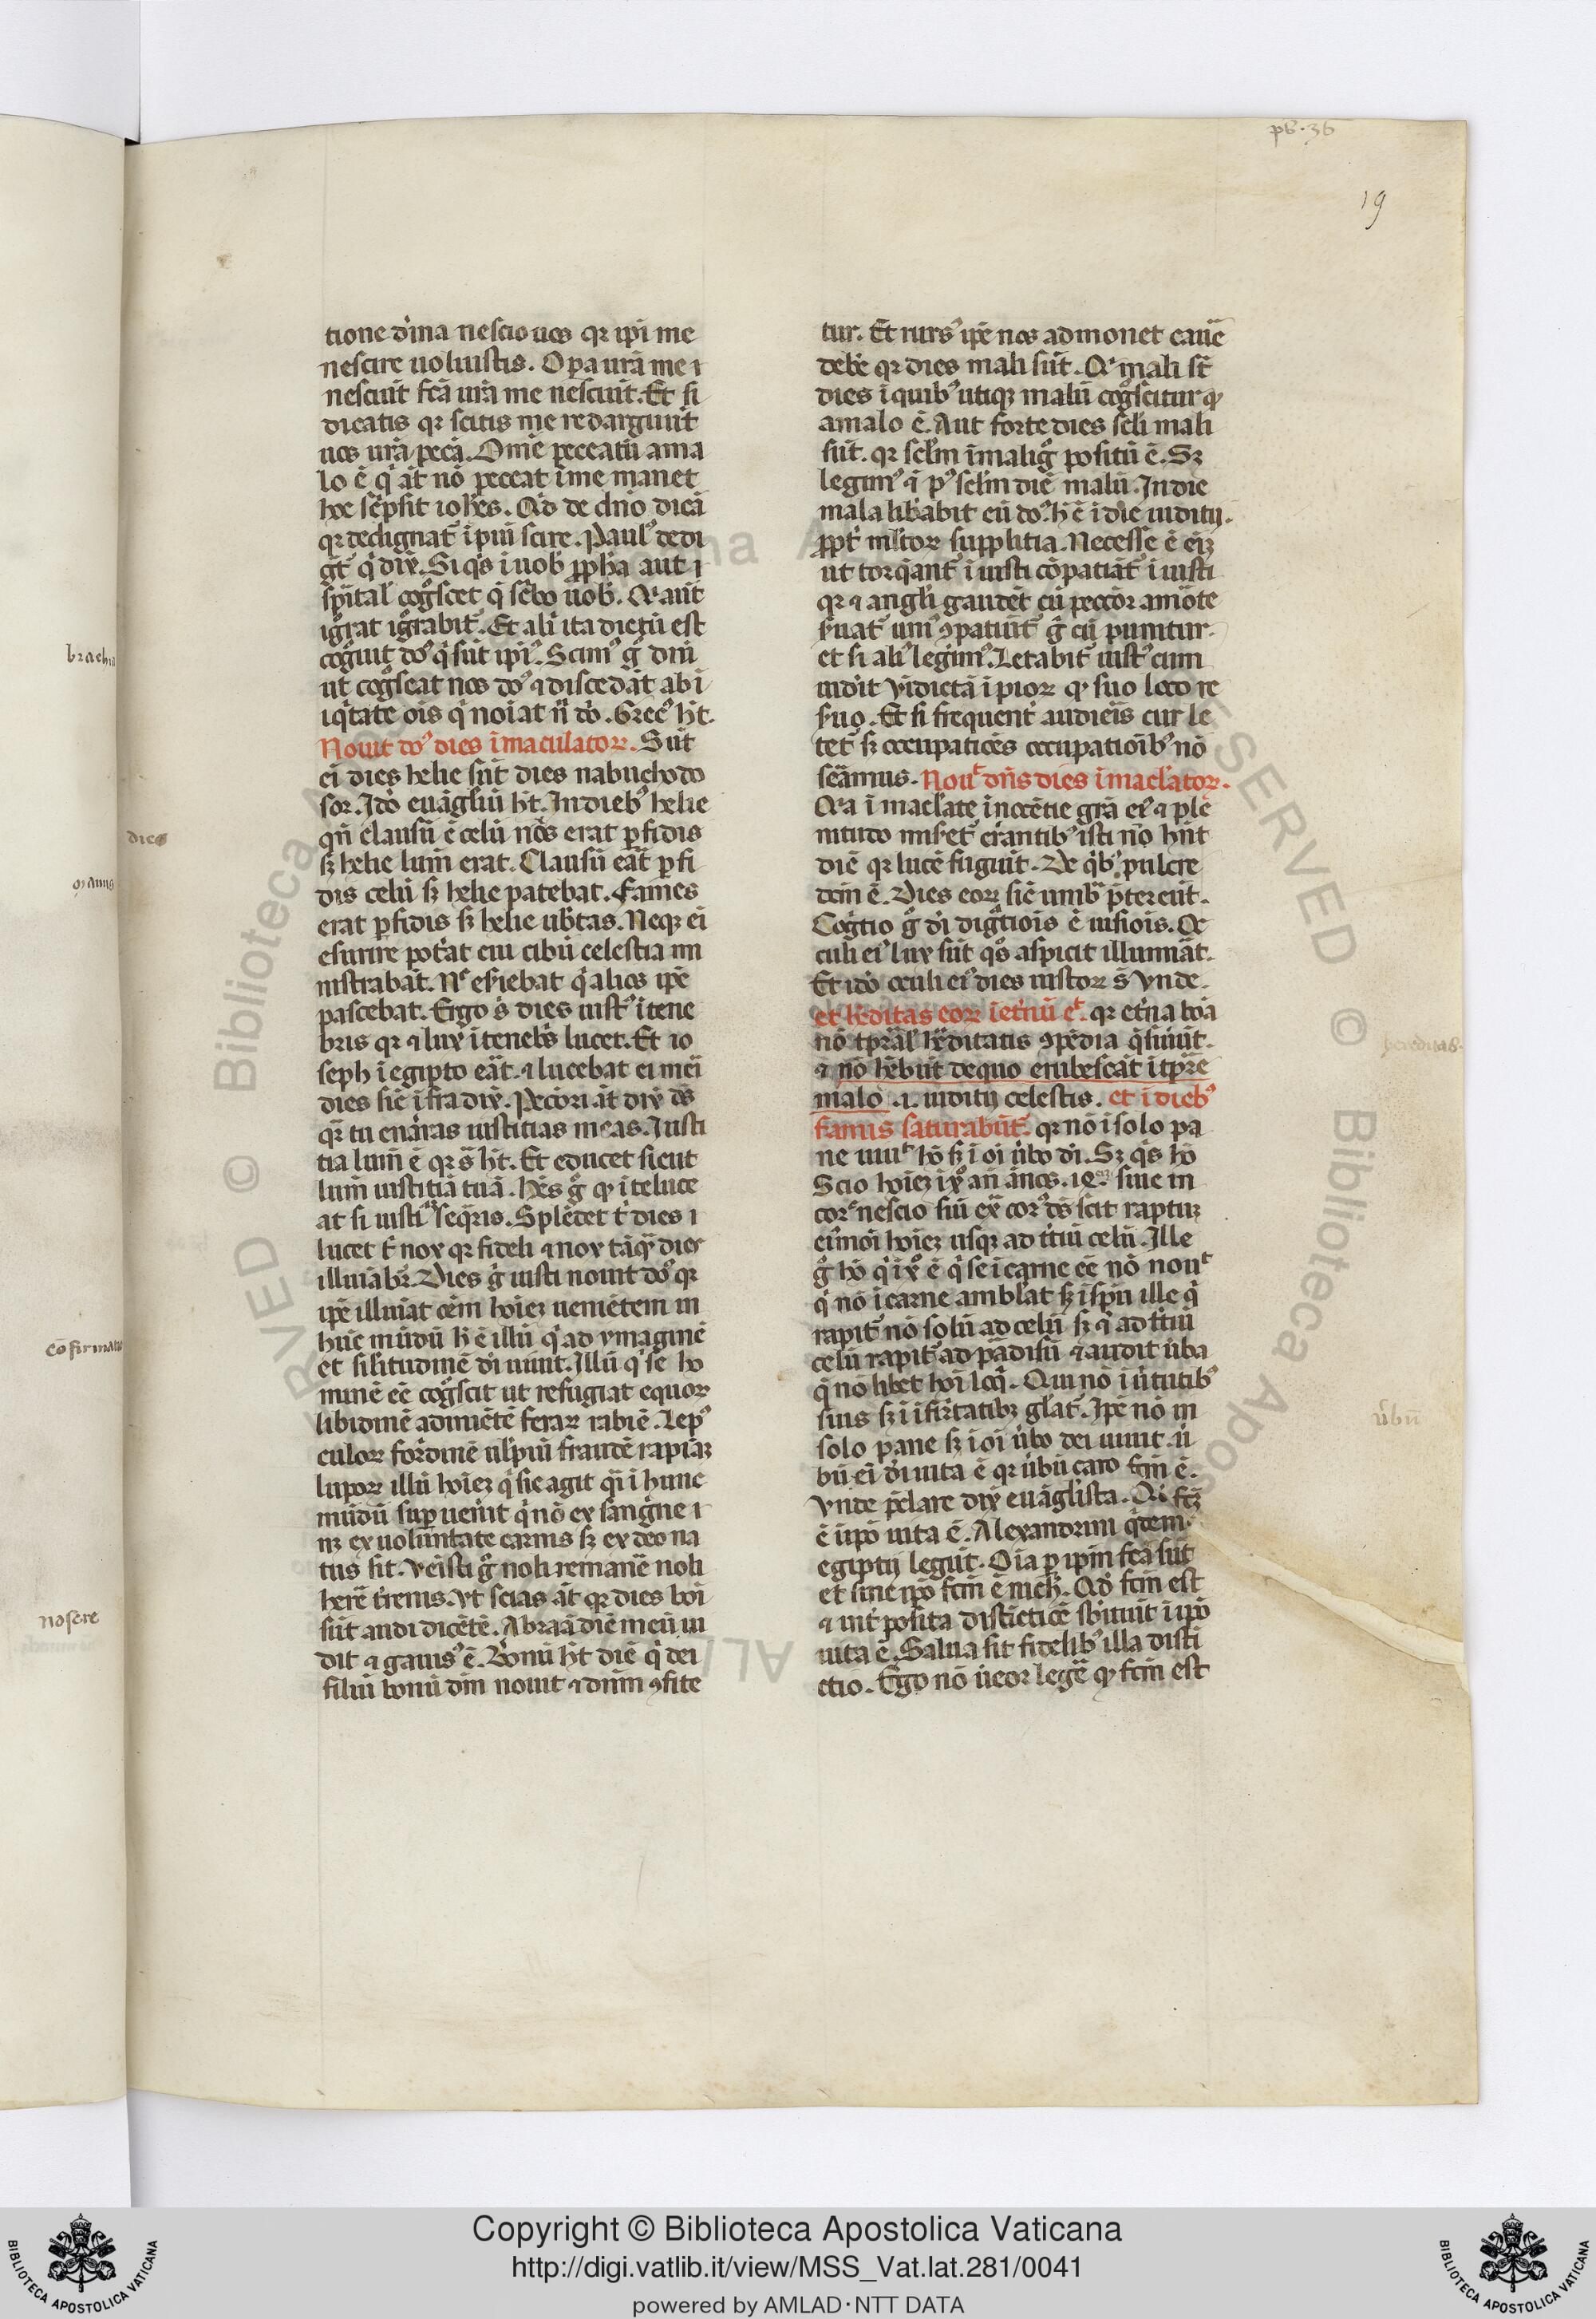 pſ. 36
19
tione dīna neſcio uos qꝛ ip̄i me
neſcire uoluiſtis. Opa ur̄a me ı
neſciūt fc̄a ur̄a me neſciūt. Et ſi
dicatis qꝛ ſcitis me redarguūt
uos ur̄a pecā. Omē peccatū a ma
lo ē q̇ āt nō peccat ī me manet
hoc ſcͥpſit ioh̄es. Qd̄ de dn̄o dicā
qꝛ dedignatᷣ īpiū ſcire. Paulꝰ dedi
gͣtᷣ q̇ dix̄. Si q̇s ī uob̄ ꝓph̄a aut ı
ſp̄ital̄ cogͦſcet q̄ ſcͥbo uob̄. Qͥ aūt
igͦrat igͦrabitᷣ. Et alͥ ita dictū eſt
cogͦuit doꝰ q̇ ſūt ipīꝰ. Scimꝰ gͦ dn̄ı
ut cogͦſcat nos doꝰ ⁊ diſcedāt ab ı
iq̇tate oıs q̇ noīat n̄ dō. Grecꝰ h̄t.
Nouit doꝰ dies īmaculatoꝝ. Sūt
eī dies helie ſūt dies nabuchodo
ſor. Idō euāgͥliū h̄t. In diebꝰ helie
qn̄ clauſū ē celū noc̄s erat ꝑfidis
ſꝫ helie lum̄ erat. Clauſū eāt ꝑfi
dis celū ſꝫ helie patebat. Fames
erat ꝑfidis ſꝫ helie ub̄tas. Neqꝫ eī
eſurire pot̄at cui cibū celeſtia mı
niſtrabāt. Nͨ eſͥiebat q̇ alios ip̄e
paſcebat. Ergo ē dies iuſtꝰ ī tene
bris qꝛ ⁊ lux ī tenebͥs lucet. Et io
ſeph ī egipto eāt ⁊ lucebat ei mēı
dies ſic īfra dix̄. Pecōrı āt dix̄ ds̄
qͣꝛ tu enarras iuſtitias meas. Iuſti
tia lum̄ ē qꝛ ſ̄ h̄t. Et educet ſicut
lum̄ iuſtitiā tuā. Hēs gͦ qͥ ī te luce
at ſi iuſtiᷓ ſeqͣris. Splēdet tͥ dies ı
lucet tͥ nox qꝛ fideli ⁊ nox tāqͣ dies
illuīabͥr. Dies gͦ iuſti nouit doꝰ qꝛ
ip̄e illuīat oēm hoīeꝫ ueniētem in
hūc mūdū h̄ ē illū q̇ ad ymaginē
et ſil̄itudinē di uiuit. Illū q̇ ſe ho
minē eē cogͦſcit ut refugiat equoꝝ
libidinē adiniētē feraꝝ rabiē. Lepꝰ
culoꝝ foꝛdinē ulpiū fraudē rapiāꝫ
lupoꝝ illū hoīeꝫ q̇ ſic agit qͣı ī hunc
mūdū ſup̱ uenit q̇ nō ex ſangͥne ı
nꝫ ex uoluntate carnis ſꝫ ex deo na
tus ſit. Veſti gͦ noli remanē noli
herē tͥrenis. Vt ſcias āt qꝛ dies boı
ſūt audi dicētē. Abraā diē meū ui
dit ⁊ gauisꝰ ē. Bonū h̄t diē q̇ dei
filiū bonū dm̄ nouit ⁊ dn̄m ꝯfite
tur. Et rurſꝰ ip̄e nos admonet cauē
debē qꝛ dies mali ſūt. Qͥ mali ſt̄
dies ī quibꝰ utiqꝫ malū cogͦſcitur qͥ
a malo ē. Aut forte dies ſcl̄i mali
ſūt. qꝛ ſcl̄m ī maligͦ poſitū ē. Sꝫ
legimꝰ ⁊ pꝰ ſcl̄m diē malū. In die
mala lib̄abit eū doꝰ. h̄ ē ī die iuditij.
ꝓpt̄ ml̄toꝝ ſupplitia. Neceſſe ē eīꝫ
ut torqͣntᷣ īiuſti cōpatiātᷣ iuſti
qꝛ ⁊ angl̄i gaudēt cū peccōr amōte
ſͥuatᷣ unīꝰ ꝯpatiūtᷣ gͦ cū punitur.
et ſi alͥ legimꝰ. Letabitᷣ iuſtꝰ cum
uid̄it vīdictā īpioꝝ qͥ ſuo loco re
ſͥuo. Et ſi frequent̄ audieīs cur le
tetᷣ ſꝫ occupatiōes occupatioībꝰ nō
ſeāmus. Nouͭ dn̄s dies īmacl̄atoꝝ.
Qͥa īmacl̄ate īnocētie gr̄a eiꝰ ⁊ ple
nitudo miſetᷣ errantibꝰ iſti nō hn̄t
diē qꝛ lucē fugiūt. De q̇bꝰ pulcre
dcm̄ ē. Dies eoꝝ ſic umbͣ p̄tereūt.
Cogͥtio gͦ di digͣtiois ē uiſiois. Oc
culi eiꝰ lux ſūt q̇s aſpicit illuminat.
Et idō oculi eiꝰ dies iuſtoꝝ ſ̄ Vnde.
et h̄editas eoꝝ ī et̄nū eͭ. qꝛ et̄na boā
nō tp̄ral̄ h̄editatis ꝯpēdia q̇ſiuīt.
⁊ nō h̄ebūt de quo erubeſcāt ī tp̄re
malo .ı. iuditij celeſtis. et ī diebꝰ
famis ſaturabūtᷣ. qꝛ nō ī ſolo pa
ne uiuͭ hō ſꝫ ī oī ūbo di. Sꝫ q̇s hō
Scio hoīeꝫ ī xͦ an̄ ānos .14. ſiue in
corꝰ neſcio ſiū ex̄ corꝰ ds̄ ſcit raptuꝫ
eiꝰmoī hoīeꝫ uſqꝫ ad tͥtiū celū. Ille
gͦ hō q̇ ī xͦ ē q̇ ſe ī carne eē nō nouͭ
q̇ nō ī carne amblat ſꝫ ī ſp̄u ille q̇
rapitᷣ nō ſolū ad celū ſꝫ ⁊ ad tͥtiū
celū rapitᷣ ad pādiſū ⁊ audit ūba
q̄ nō libet hoī loq̇. Qui nō ī ūtutibꝰ
ſuis ſꝫ ī ifirtatibꝫ gl̄atᷣ. Ip̄e nō in
ſolo pane ſꝫ ī oī ūbo dei uiuit. ū
bū eī di uita ē qꝛ ūbū caro fcm̄ ē.
Vnde p̄clare dix̄ euāgͥliſta. Qd̄ fcꝫ
ē ī ipō uita ē. Alexandrini q̇dem
egiptij legūt. Oīa ꝑ ip̄m fc̄a ſūt
et ſine ipō fcm̄ ē nich̄. Qd̄ fcm̄ eſt
⁊ int̄ poſita diſtīctiōe ſb̄iciūt ī ipō
uita ē. Salua ſit fidelibꝰ illa diſtī
ctio. Ego nō ūeor legē qͥ fcm̄ eſt
brachia
dies
gͣnus
cōfirmat
noſcere
hereditas.
ūbū
Copyright © Biblioteca Apostolica Vaticana
http://digi.vatlib.it/view/MSS_Vat.lat.281/0041
powered by AMLAD·NTT DATA
BIBLIOTECA APOSTOLICA VATICANA
BIBLIOTECA APOSTOLICA VATICANA